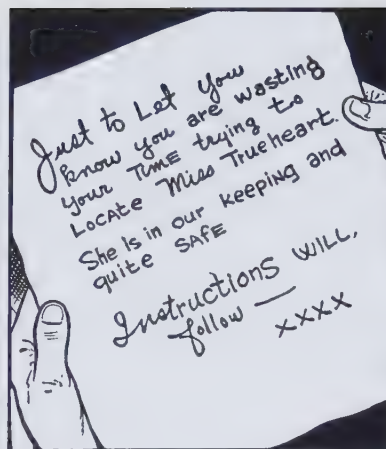 Just to Let you
know you are wasting
your TIME trying to
LOCAte Miss Trueheart.
She Is in our keeping and
quite SAFE
Instructions WILL,
follow —
xxxx